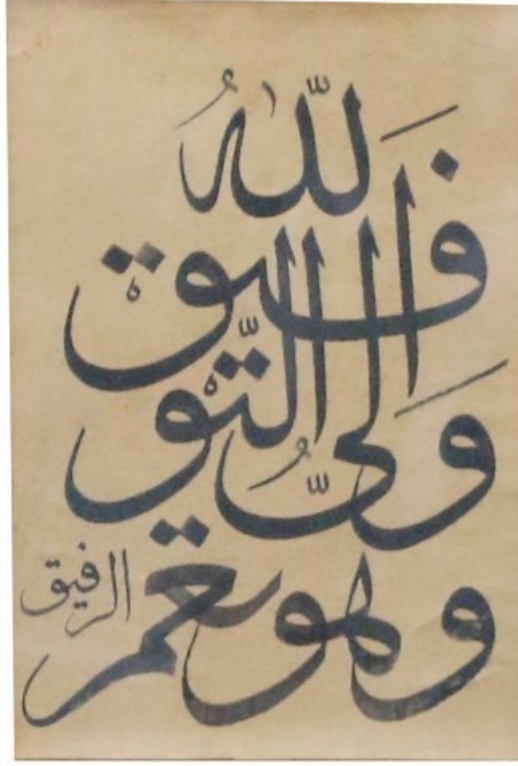 اَللّٰهُ وَلِىُّ التّوْفيقْ
وهو نعم الرفيق